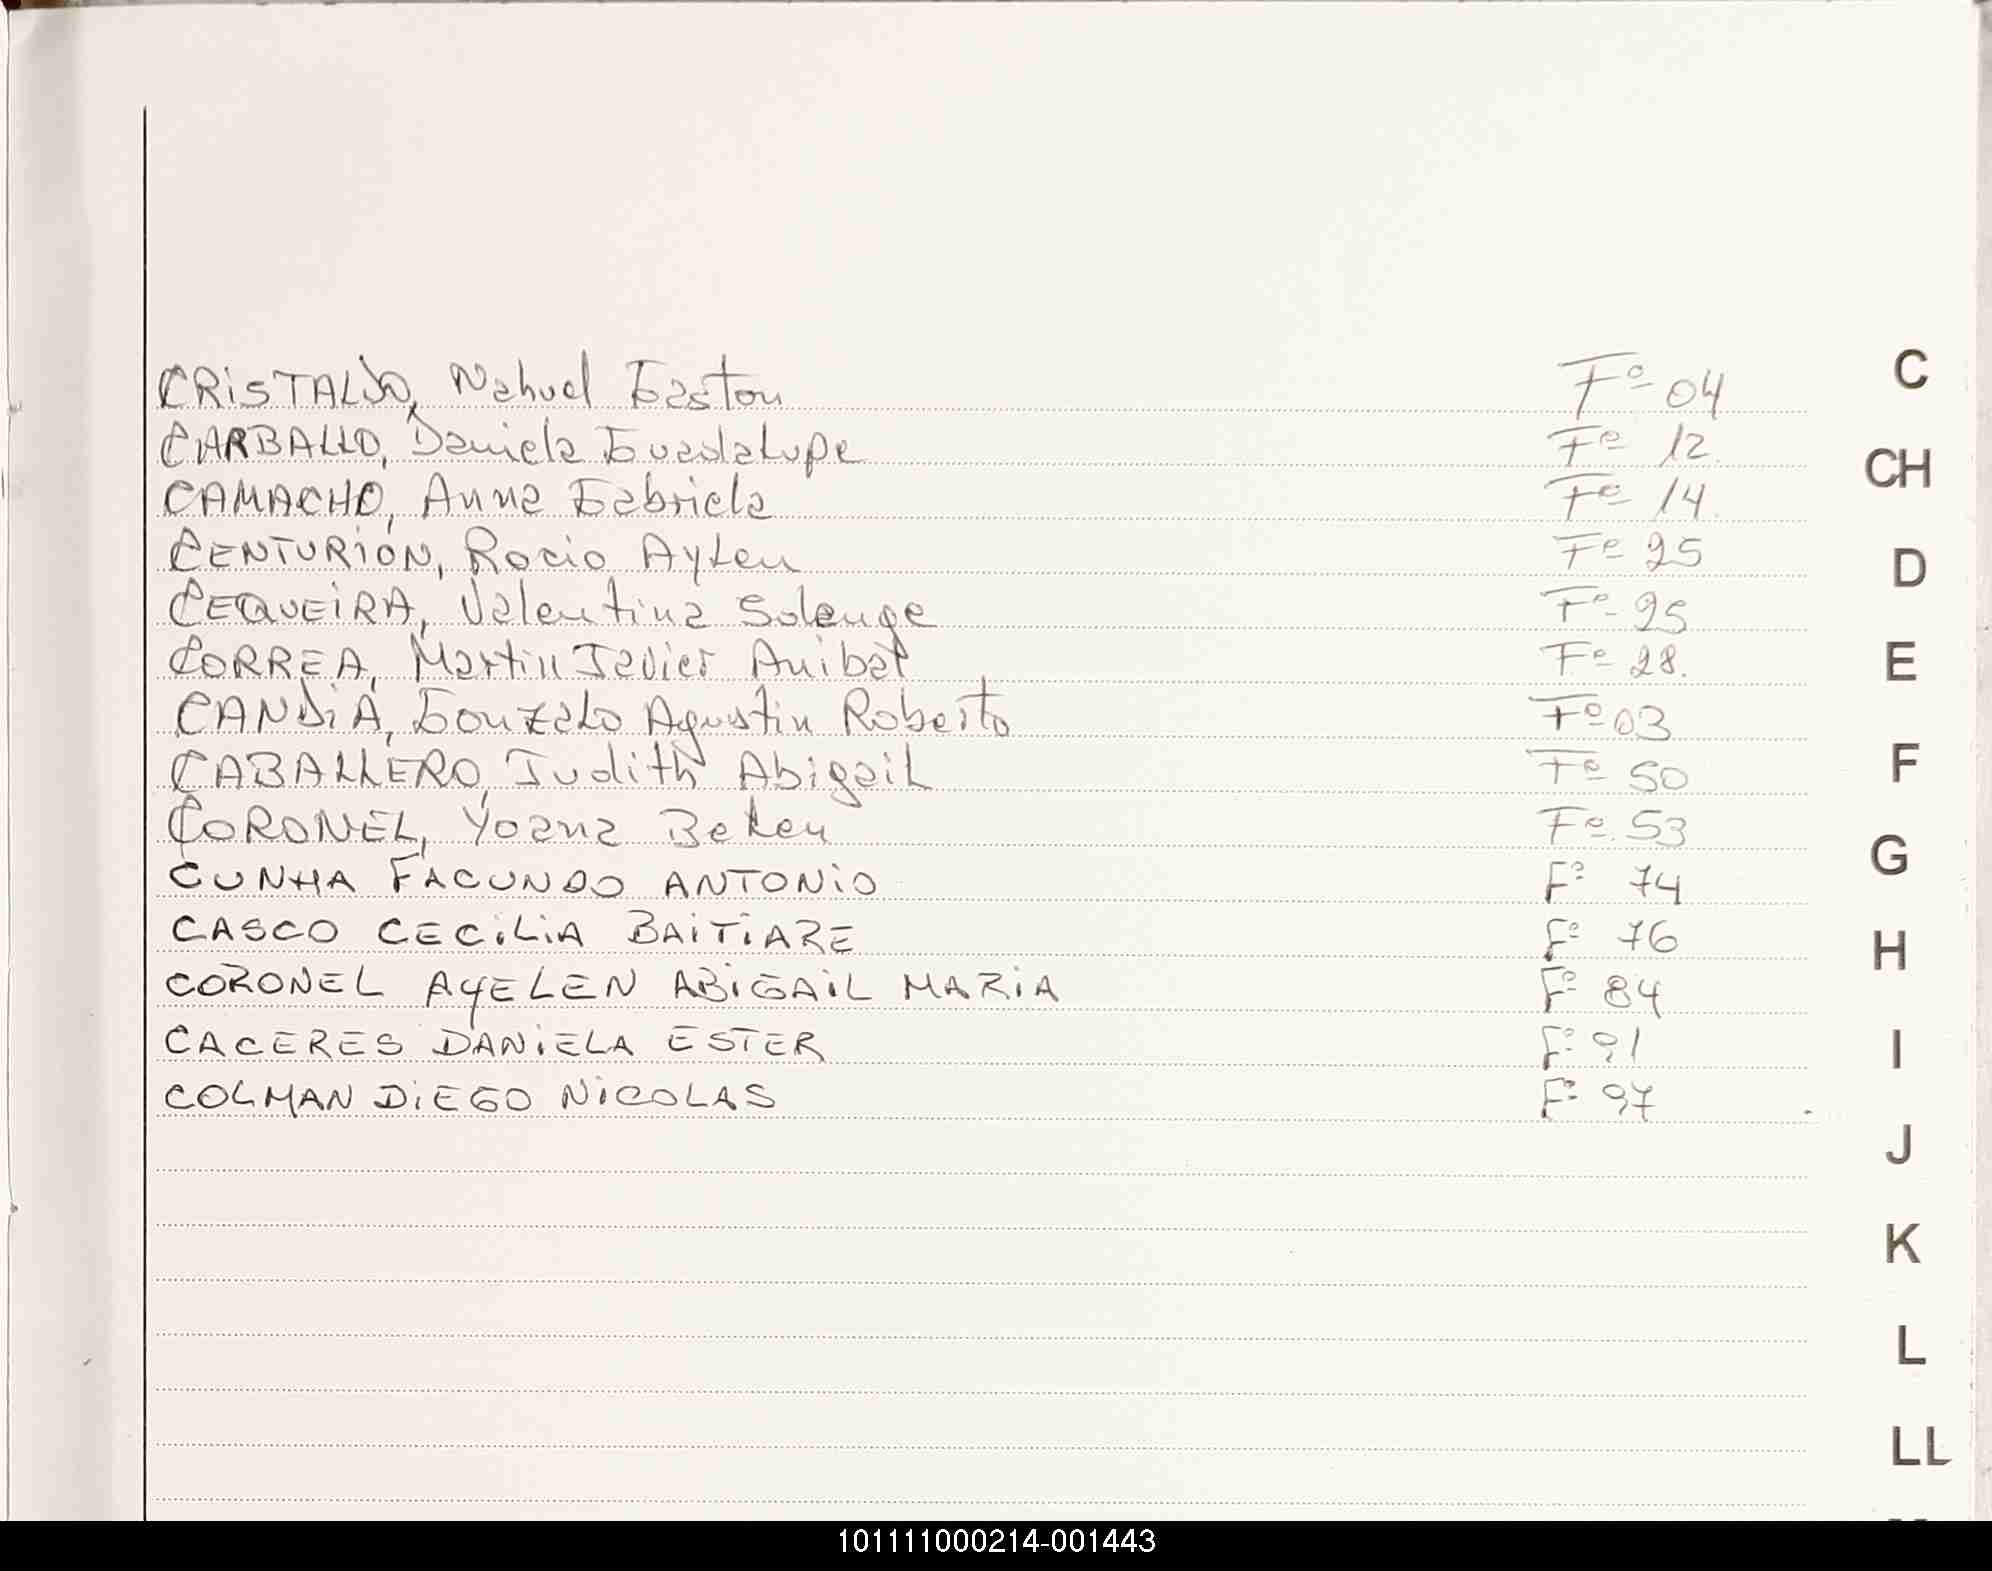 CRISTALDO, Nahuel Gaston Fº 04
CARBALLO, Daniela Guadalupe Fº 12
CAMACHO, Anna Gabriela Fº 14
CENTURIÓN, Rocio Aylen Fº 25
CEQUEIRA, Valentina Solange Fº 25
CORREA, Martin Javier Anibal Fº 28.
CANDIA, Gonzalo Agustin Roberto Fº 03
CABALLERO, Judith Abigail Fº 50
CORONEL, Yoana Belen Fº 53
CUNHA FACUNDO ANTONIO Fº 74
CASCO CECILIA BAITIARE Fº 76
CORONEL AYELEN ABIGAIL MARIA Fº 84
CACERES DANIELA ESTER Fº 91
COLMAN DIEGO NICOLAS Fº 97
C
CH
D
E
F
G
H
I
J
K
L
LL
101111000214-001443